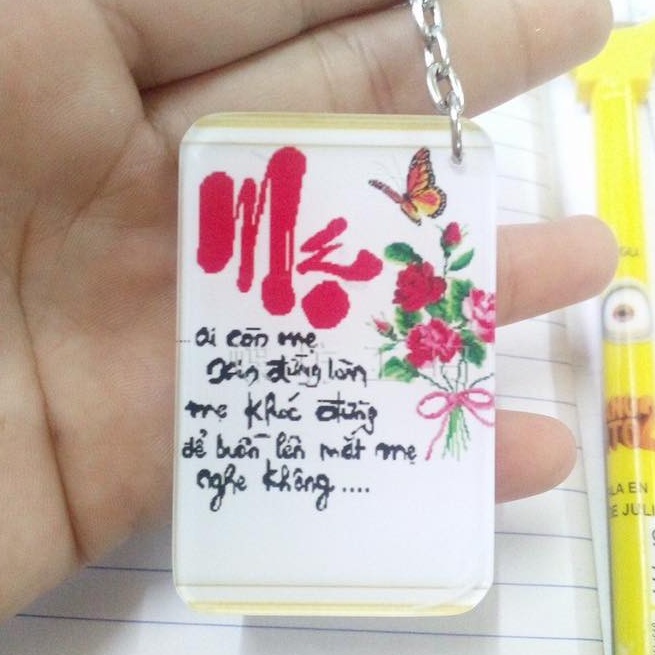 Mẹ
ai còn mẹ
Xin đừng làm
mẹ khóc đừng
để buồn lên mắt mẹ
nghe không ....
LA EN
E JULI